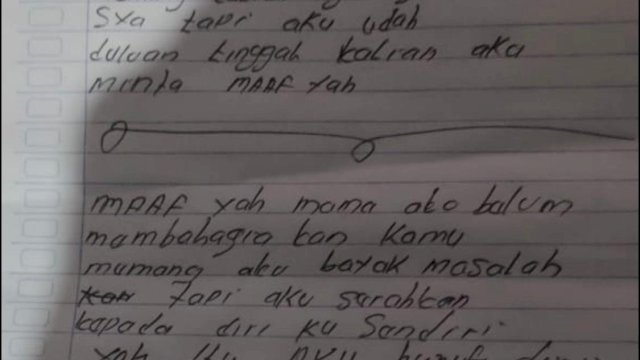 sya tapi aku udah
duluan tinggah kalian aku
minta MAAF yah
MAAF yah mama ako balum
mambahagia kan kamu
mumang aku bayak masalah
tapi aku sarahkan
kapada diri ku Sandiri
yah itu aku